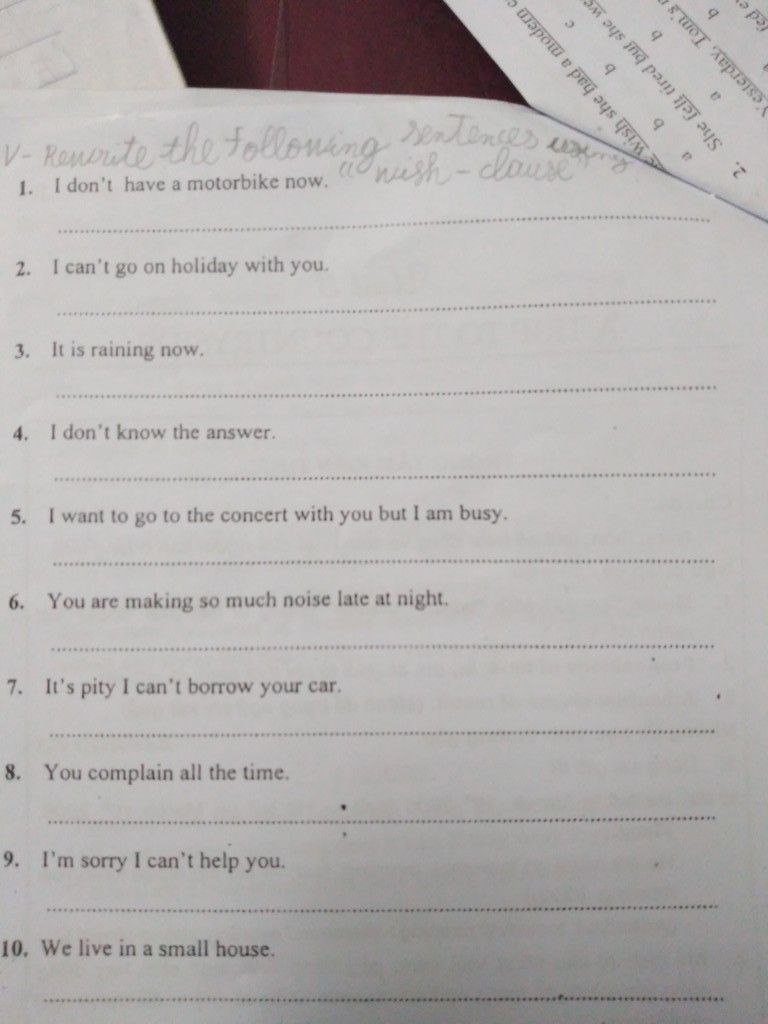 V- Rewrite the following sentences using
a wish - clause
1. I don't have a motorbike now.
2. I can't go on holiday with you.
3. It is raining now.
4. I don't know the answer.
5. I want to go to the concert with you but I am busy.
6. You are making so much noise late at night.
7. It's pity I can't borrow your car.
8. You complain all the time.
9. I'm sorry I can't help you.
10. We live in a small house.
wish she had a modern
a b c
2. She felt tired but she we
a b
Yesterday, Tom's
a b